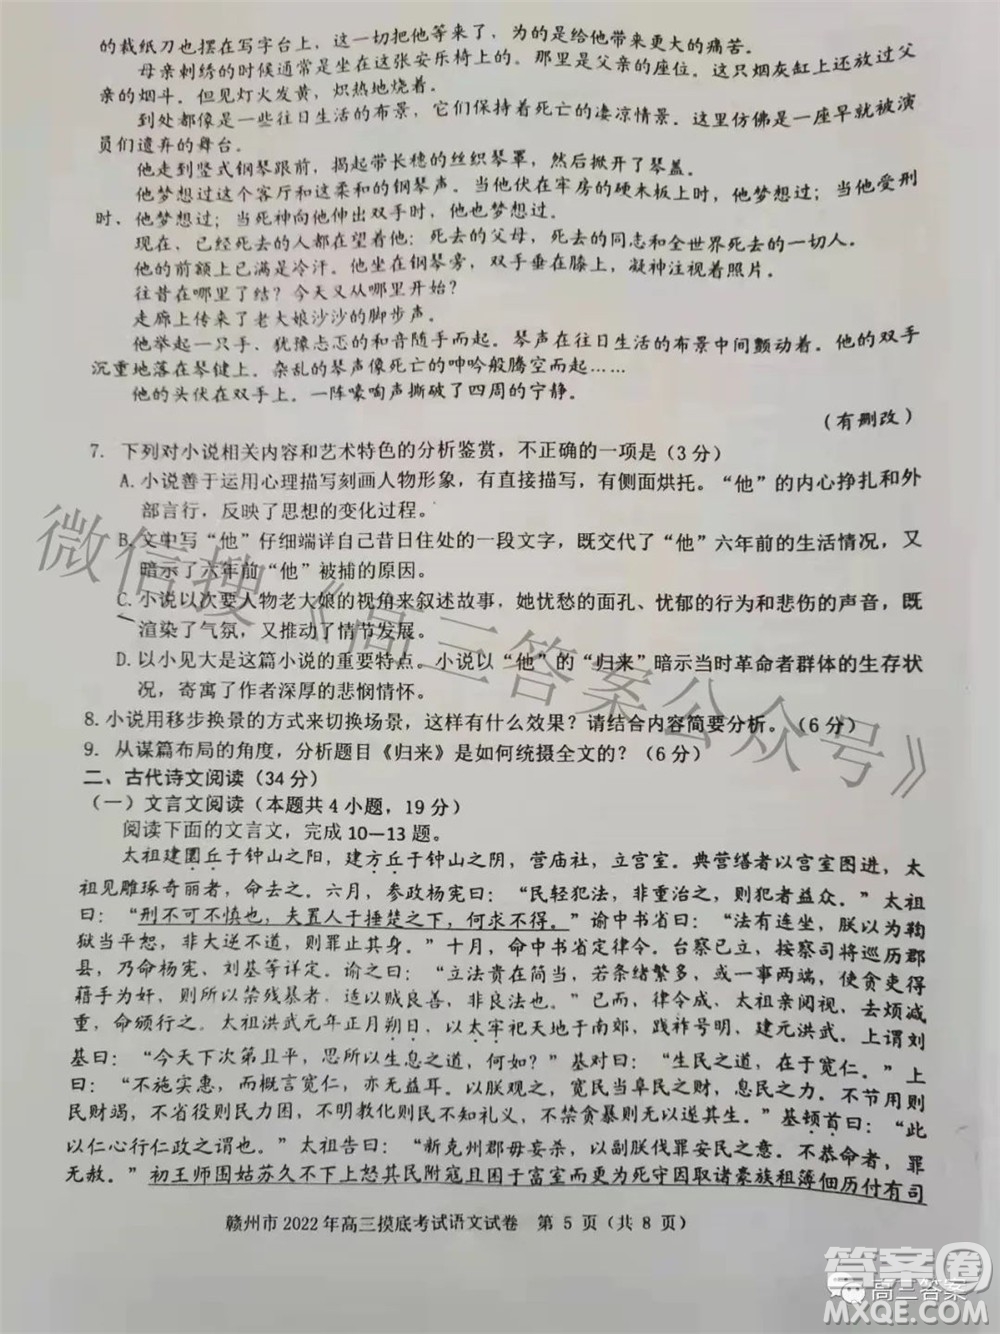 的裁纸刀也摆在写字台上，这一切把他等来了，为的是给他带来更大的痛苦。
母亲刺绣的时候通常是坐在这张安乐椅上的。那里是父亲的座位。这只烟灰缸上还放过父
亲的烟斗。但见灯火发黄，炽热地烧着。
到处都像是一些往日生活的布景，它们保持着死亡的凄凉情景。这里仿佛是一座早就被演
员们遗弃的舞台。
他走到竖式钢琴跟前，揭起带长穗的丝织琴罩，然后掀开了琴盖。
他梦想过这个客厅和这柔和的钢琴声。当他卧在牢房的硬木板上时，他梦想过；当他受刑
时、他梦想过；当死神向他伸出双手时，他也梦想过。
现在，已经死去的人都在望着他：死去的父母，死去的同志和全世界死去的一切人。
他的前额上已满是冷汗。他坐在钢琴旁，双手垂在膝上，凝神注视着照片。
往昔在哪里了结？今天又从哪里开始？
走廊上传来了老大娘沙沙的脚步声。
他举起一只手、犹豫忐忑的和音随手而起。琴声在往日生活的布景中间颤动着。他的双手
沉重地落在琴键上。杂乱的琴声像死亡的呻吟般腾空而起……
他的头伏在双手上。一阵嚎啕声撕破了四周的宁静。
（有删改）
7．下列对小说相关内容和艺术特色的分析鉴赏，不正确的一项是（3分）
A.小说善于运用心理描写刻画人物形象，有直接描写，有侧面烘托。“他”的内心挣扎和外
部言行，反映了思想的变化过程。
B.文中写“他”仔细端详自己昔日住处的一段文字，既交代了“他”六年前的生活情况，又
暗示了六年前“他”被捕的原因。
C.小说以次要人物老大娘的视角来叙述故事，她忧愁的面孔、忧郁的行为和悲伤的声音，既
渲染了气氛，又推动了情节发展。
D.以小见大是这篇小说的重要特点。小说以“他”的“归来”暗示当时革命者群体的生存状
况，寄寓了作者深厚的悲悯情怀。
8.小说用移步换景的方式来切换场景，这样有什么效果？请结合内容简要分析。（6分）
9．从谋篇布局的角度，分析题目《归来》是如何统摄全文的？（6分）
二、古代诗文阅读（34分）
（一）文言文阅读（本题共4小题，19分）
阅读下面的文言文，完成10—13题。
太祖建圜丘于钟山之阳，建方丘于钟山之阴，营庙社，立宫室。典营缮者以宫室图进，太
祖见雕琢奇丽者，命去之。六月，参政杨宪曰：“民轻犯法，非重治之，则犯者益众。”太祖
曰：“刑不可不慎也，夫置人于捶楚之下，何求不得。”谕中书省曰：“法有连坐，朕以为鞫
狱当平恕，非大逆不道，则罪止其身。”十月，命中书省定律令。台察已立，按察司将巡历郡
县，乃命杨宪、刘基等详定。谕之曰：“立法贵在简当，若条绪繁多，或一事两端，使贪吏得
藉手为奸，则所以禁残暴者，适以贼良善，非良法也。”已而，律令成，太祖亲阅视，去烦减
重，命颁行之。太祖洪武元年正月朔日，以太牢祀天地于南郊，践祚号明，建元洪武。上谓刘
基曰：“今天下次第且平，思所以生息之道，何如？”基对曰：“生民之道，在于宽仁。”上
曰：“不施实惠，而概言宽仁，亦无益耳。以朕观之，宽民当阜民之财，息民之力。不节用则
民财竭，不省役则民力困，不明教化则民不知礼义，不禁贪暴则无以遂其生。”基顿首曰：“此
以仁心行仁政之谓也。”太祖告曰：“新克州郡毋妄杀，以副朕伐罪安民之意。不恭命者，罪
无赦。”初王师围姑苏久不下上怒其民附寇且困于富室而更为死守因取诸豪族租簿佃历付有司
赣州市2022年高三摸底考试语文试卷　第 5 页（共 8 页）
微信搜《高三答案公众号》
高三答案
答案圈
MXQE.COM